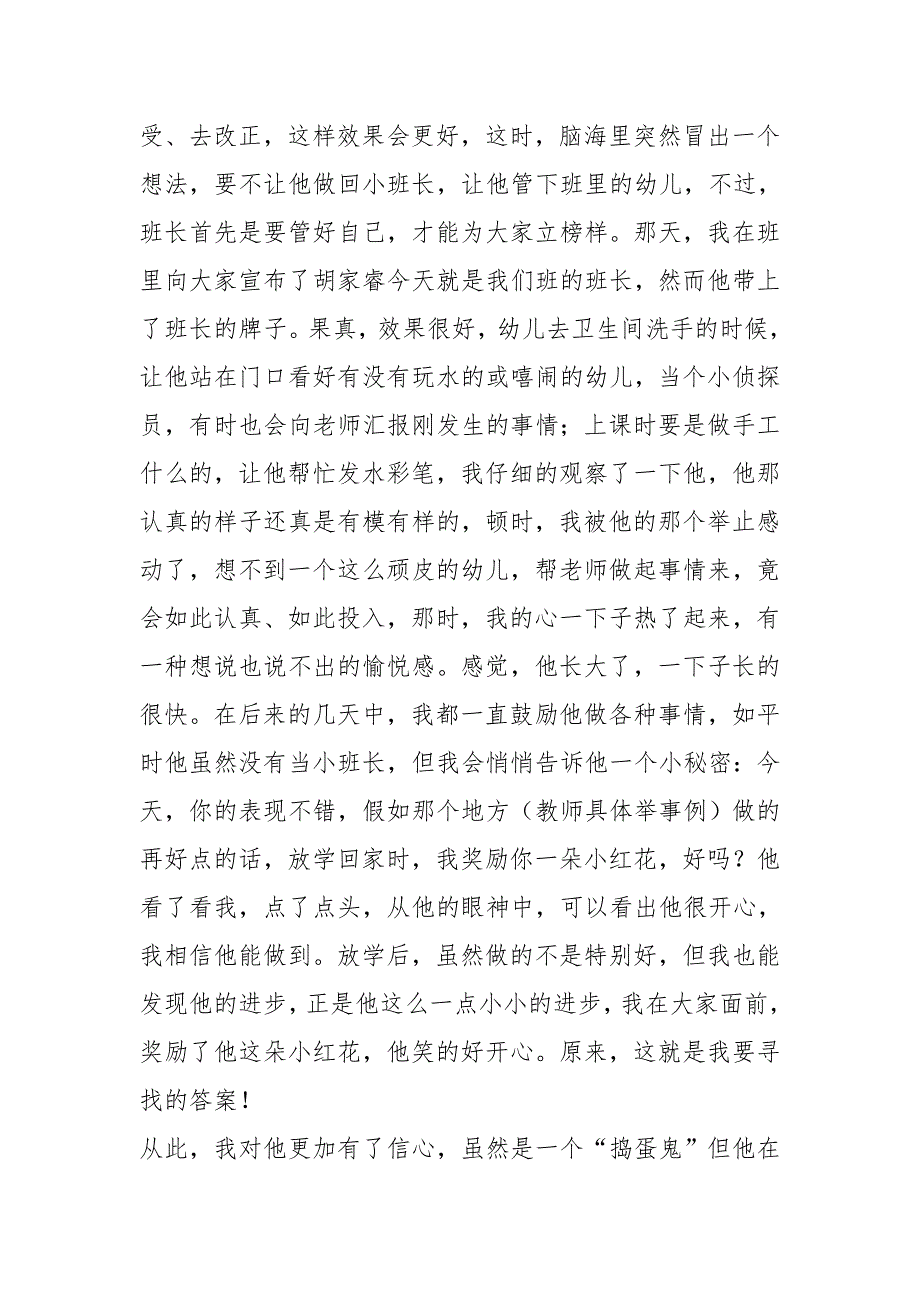 受、去改正，这样效果会更好，这时，脑海里突然冒出一个
想法，要不让他做回小班长，让他管下班里的幼儿，不过，
班长首先是要管好自己，才能为大家立榜样。那天，我在班
里向大家宣布了胡家睿今天就是我们班的班长，然而他带上
了班长的牌子。果真，效果很好，幼儿去卫生间洗手的时候，
让他站在门口看好有没有玩水的或嘻闹的幼儿，当个小侦探
员，有时也会向老师汇报刚发生的事情；上课时要是做手工
什么的，让他帮忙发水彩笔，我仔细的观察了一下他，他那
认真的样子还真是有模有样的，顿时，我被他的那个举止感
动了，想不到一个这么顽皮的幼儿，帮老师做起事情来，竟
会如此认真、如此投入，那时，我的心一下子热了起来，有
一种想说也说不出的愉悦感。感觉，他长大了，一下子长的
很快。在后来的几天中，我都一直鼓励他做各种事情，如平
时他虽然没有当小班长，但我会悄悄告诉他一个小秘密：今
天，你的表现不错，假如那个地方（教师具体举事例）做的
再好点的话，放学回家时，我奖励你一朵小红花，好吗？他
看了看我，点了点头，从他的眼神中，可以看出他很开心，
我相信他能做到。放学后，虽然做的不是特别好，但我也能
发现他的进步，正是他这么一点小小的进步，我在大家面前，
奖励了他这朵小红花，他笑的好开心。原来，这就是我要寻
找的答案！
从此，我对他更加有了信心，虽然是一个“捣蛋鬼”但他在